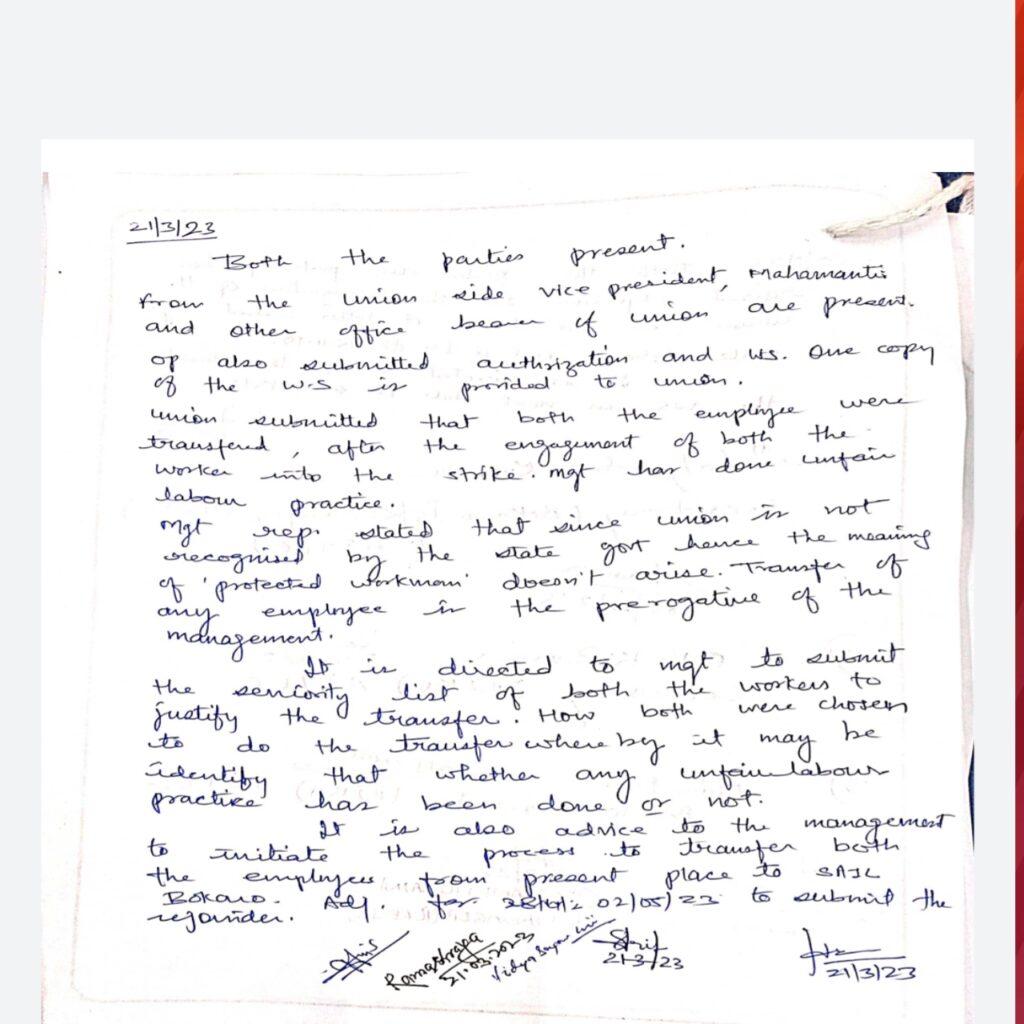 21/3/23
Both the parties present.
From the union side vice president, Mahamantri
and other office bearer of union are present.
OP also submitted authrization and WS. One copy
of the W.S is provided to union.
Union submitted that both the employee were
transfered, after the engagement of both the
worker into the strike. mgt has done unfair
labour practice.
Mgt rep. stated that since union is not
recognised by the state govt hence the meaning
of 'protected workman' doesn't arise. Transfer of
any employee is the prerogative of the
management.
It is directed to mgt to submit
the seniority list of both the workers to
justify the transfer. How both were chosen
to do the transfer whereby it may be
identify that whether any unfair labour
practice has been done or not.
It is also advice to the management
to initiate the process to transfer both
the employees from present place to SAIL
Bokaro. Adj. for 02/05/23 to submit the
rejoinder.
21.03.2023
21/3/23
21/3/23